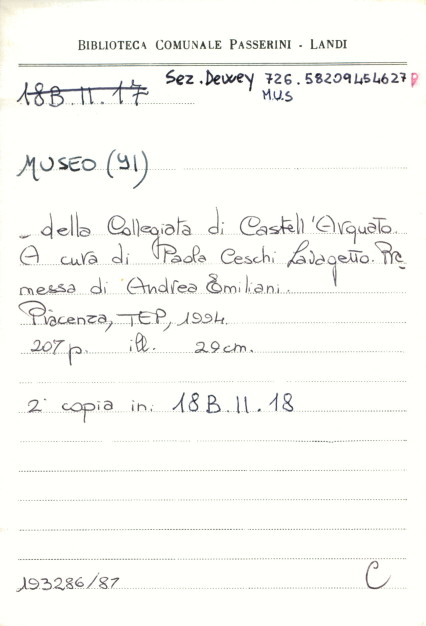 BIBLIOTECA COMUNALE PASSERINI - LANDI
18B.II.17 Sez. Dewey 726.58209454627 P
MUS
MUSEO (YI)
- della Collegiata di Castell'Arquato.
A cura di Paola Ceschi Lavagetto. Pre
messa di Andrea Emiliani.
Piacenza, TEP, 1994.
207 p. ill. 29 cm.
2ª copia in: 18B.II.18
193286/87 C